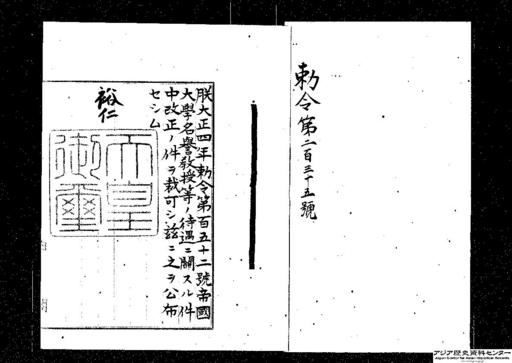 勅令第二百三十五號
朕大正四年勅令第百五十二號帝國
大學名譽教授等ノ待遇ニ關スル件
中改正ノ件ヲ裁可シ茲ニ之ヲ公布
セシム
裕仁
天皇
御璽
アジア歴史資料センター
Japan Center for Asian Historical Records